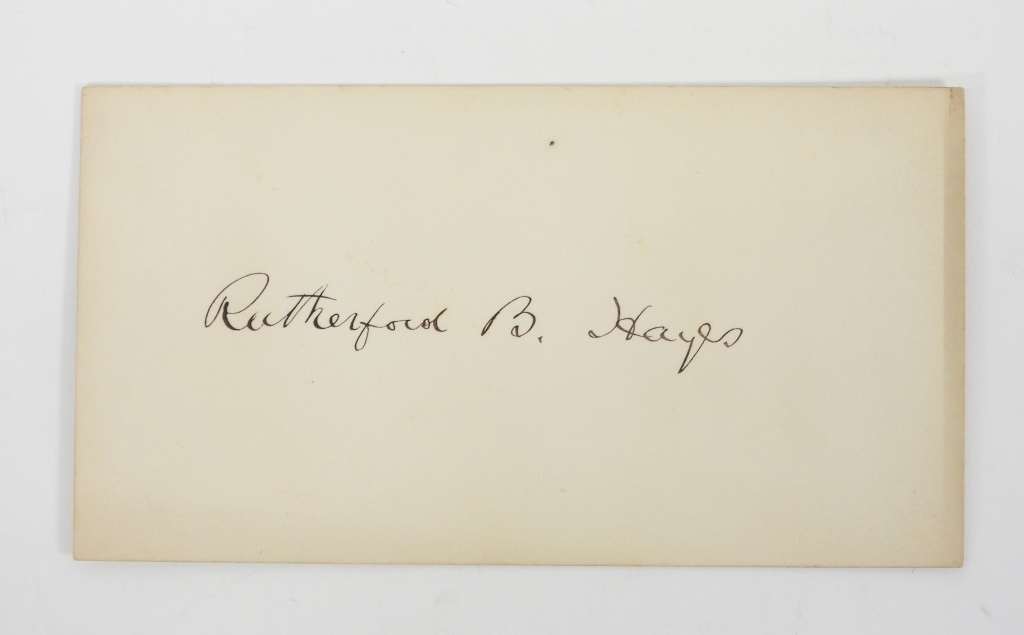 Rutherford B. Hayes